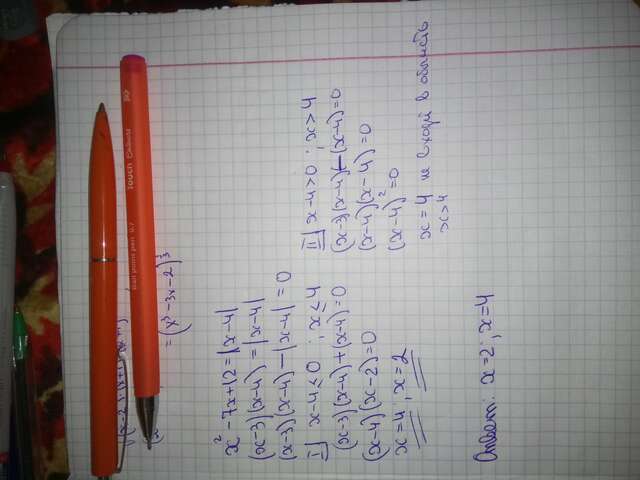 = (x³ - 3x - 2)³
x² - 7x + 12 = |x - 4|
(x - 3)(x - 4) = |x - 4|
(x - 3)(x - 4) - |x - 4| = 0
I x - 4 ≤ 0 ; x ≤ 4
(x - 3)(x - 4) + (x - 4) = 0
(x - 4)(x - 2) = 0
x = 4 ; x = 2
II x - 4 > 0 ; x > 4
(x - 3)(x - 4) - (x - 4) = 0
(x - 4)(x - 4) = 0
(x - 4)² = 0
x = 4 не входит в область
x > 4
Ответ: x = 2 ; x = 4
Ball point pen 0.7
TOUCH